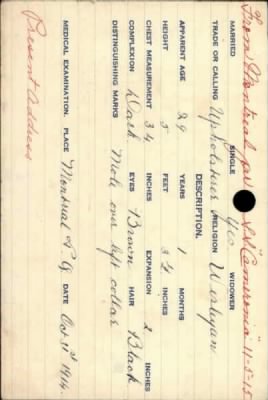 From Montreal per SS "Cameronia" 11-5-15
MARRIED SINGLE Yes WIDOWER
TRADE OR CALLING Upholsterer RELIGION Wesleyan
DESCRIPTION.
APPARENT AGE 29 YEARS 1 MONTHS
HEIGHT 5 FEET 3¼ INCHES
CHEST MEASUREMENT 34 INCHES EXPANSION 2 INCHES
COMPLEXION Dark EYES Brown HAIR Black
DISTINGUISHING MARKS Mole over left collar
MEDICAL EXAMINATION. PLACE Montreal P.Q. DATE Oct 31st 1914
Present Address